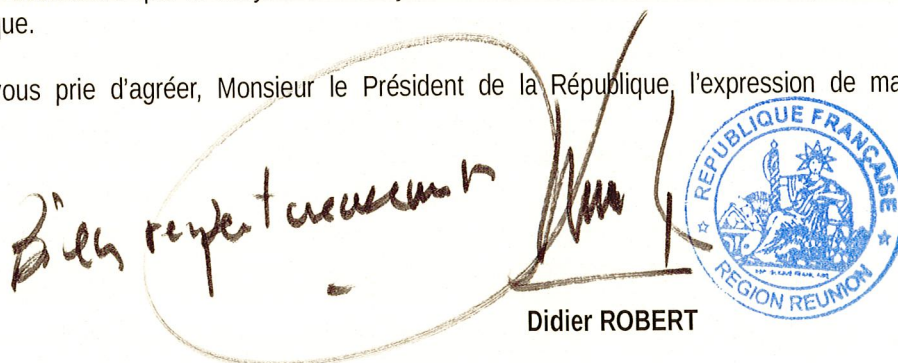 que.
vous prie d'agréer, Monsieur le Président de la République, l'expression de ma
Bien respectueusement
Didier ROBERT
REPUBLIQUE FRANÇAISE
REGION REUNION